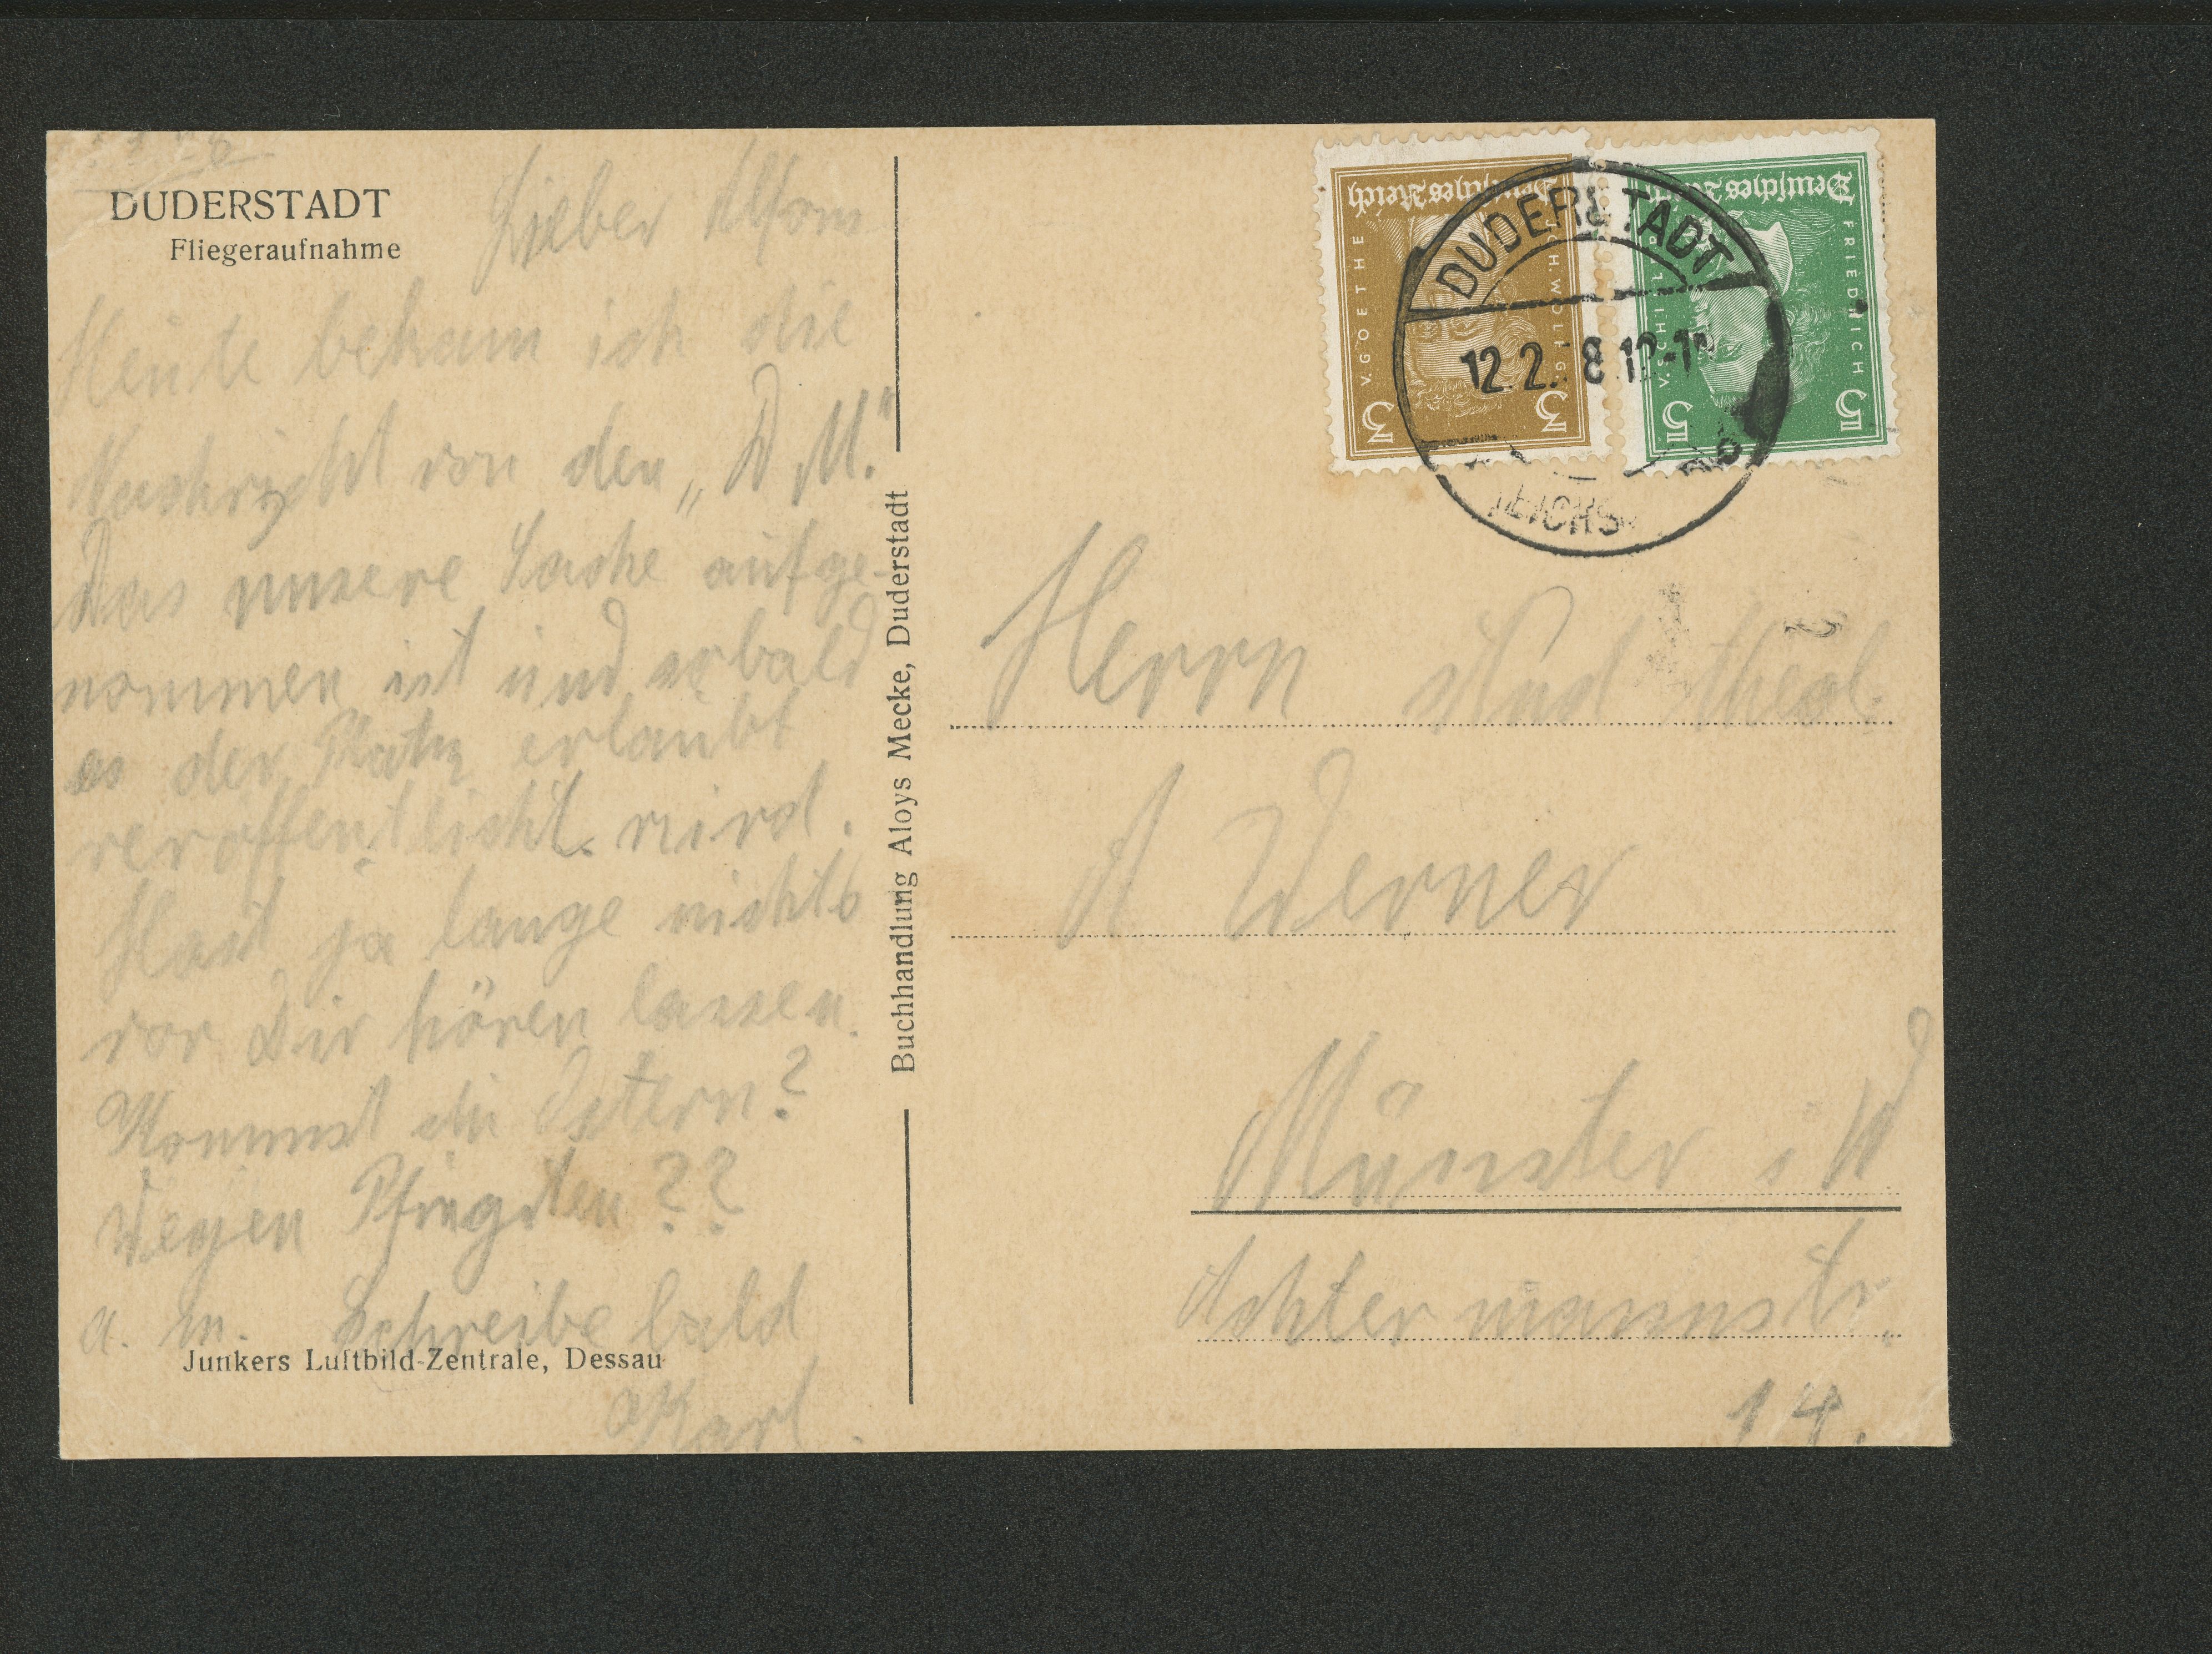 DUDERSTADT
Fliegeraufnahme
Lieber Alfons
Heute bekam ich die
Nachricht von den „D M."
Das unsere Sache aufge-
nommen ist und sobald
es der Platz erlaubt
veröffentlicht wird.
Hast ja lange nichts
von Dir hören lassen.
Kommst du Ostern?
Wegen Pfingsten??
a. m. Schreibe bald
Karl.
Junkers Luftbild-Zentrale, Dessau
Buchhandlung Aloys Mecke, Duderstadt
Deutsches Reich
JOH. WOLFG.
V. GOETHE
3 3
Deutsches Reich
FRIEDRICH
V. SCHILLER
5 5
DUDERSTADT
12.2. 8.12-1
REICHS
Herrn stud theol.
A Werner
Münster i W
Achtermannstr.
14.